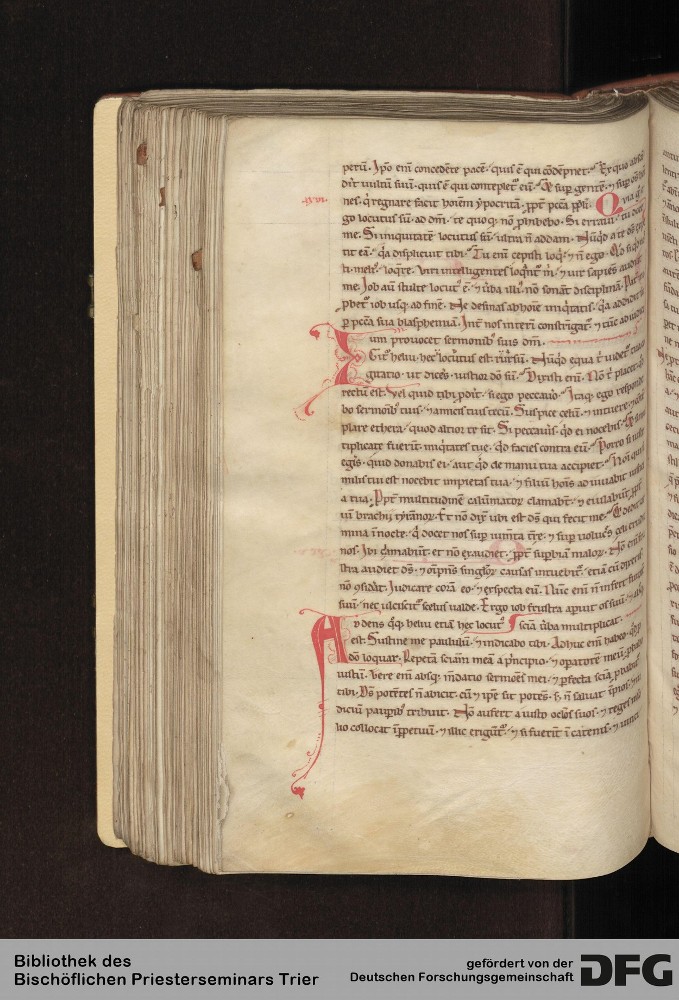 petū. Ipo enī concedēte pacē. quis ē qui cōdēpnet. Ex quo absco
dit uultū suū. quis ē qui contēplet eū. Et sup gentē. et sup oēs
nes. q regnare facit hoīem ypocritā. ppt pcca ppli. Quia
go locutus sū ad dm. te quoq nō phibebo. Si erraui tu doce
me. Si iniquitatē locutus sū. ultra n addam. Nūqd a te ds
rit eā. qa displicuit tibi. Tu enī cepisti loqi. et n ego. Qd si
ti meli. loqre. Uiri intelligentes loqnt m. et uir sapiēs audiat
me. Iob aū stulte locut ē. et uba illi nō sonāt disciplinā.
pbet iob usq ad finē. Ne desinas ab hoīe iniqtatis. qa addidit
p pcca sua blasphemiā. Int nos interī constringat. et tūc
um prouocet sermonib suis dm.
Igit heliu. hec locutus est. rursū. Nūqd equa t uidet
gitatio. ut diceres. iustior dō sū. Dixisti enī. Nō t placet
rectū est. uel quid tibi pdit. si ego peccauo. Itaq ego respondē
bo sermonib tuis. et amicis tuis tecū. Suspice celū. et intuere.
plare ethera. quod altior te sit. Si peccauis. qd ei nocebis.
tiplicate fuerīt iniqtates tue. qd facies contra eū. Porro si iuste
egis. quid donabis ei. aut qd de manu tua accipiet. Hoīi qui
milis tui est nocebit impietas tua. et filiū hoīs adiuuabit
a tua. Ppt multitudinē calūniator clamabt. et eiulabūt ppt
uī brachij tyrānor. Et nō dix ubi est ds qui fecit me.
mina in nocte. q docet nos sup iumta tre. et sup uolucs celi
nos. Ibi clamabūt et nō exaudiet. ppt supbiā malor. Nō
stra audiet ds. et omps singlor causas intuebit. etiā cū
nō gsidat. Iudicare corā eo. et exspecta eū. Nūc enī n infert
suū. nec ulciscit scelus ualde. Ergo iob frustra apuit os suū.
sciā uba multiplicat.
Addens qq heliu etiā hec locut
est. Sustine me paululū. et indicabo tibi. Adhuc enī habeo
dō loquar. Repetā sciam meā a pncipio. et opatorē meū
iustū. Vere enī absq mdatio sermoēs mei. et pfecta sciā pbabit
tibi. Ds potētes n abicit. cū et ipe sit potēs. s n saluat īpios.
diciū paupib tribuit. Nō aufert a iusto oclos suos. et reges
lio collocat ī ppetuū. et illic erigūt. et si fuerīt ī catenis. et
Bibliothek des
Bischöflichen Priesterseminars Trier
gefördert von der
Deutschen Forschungsgemeinschaft
DFG